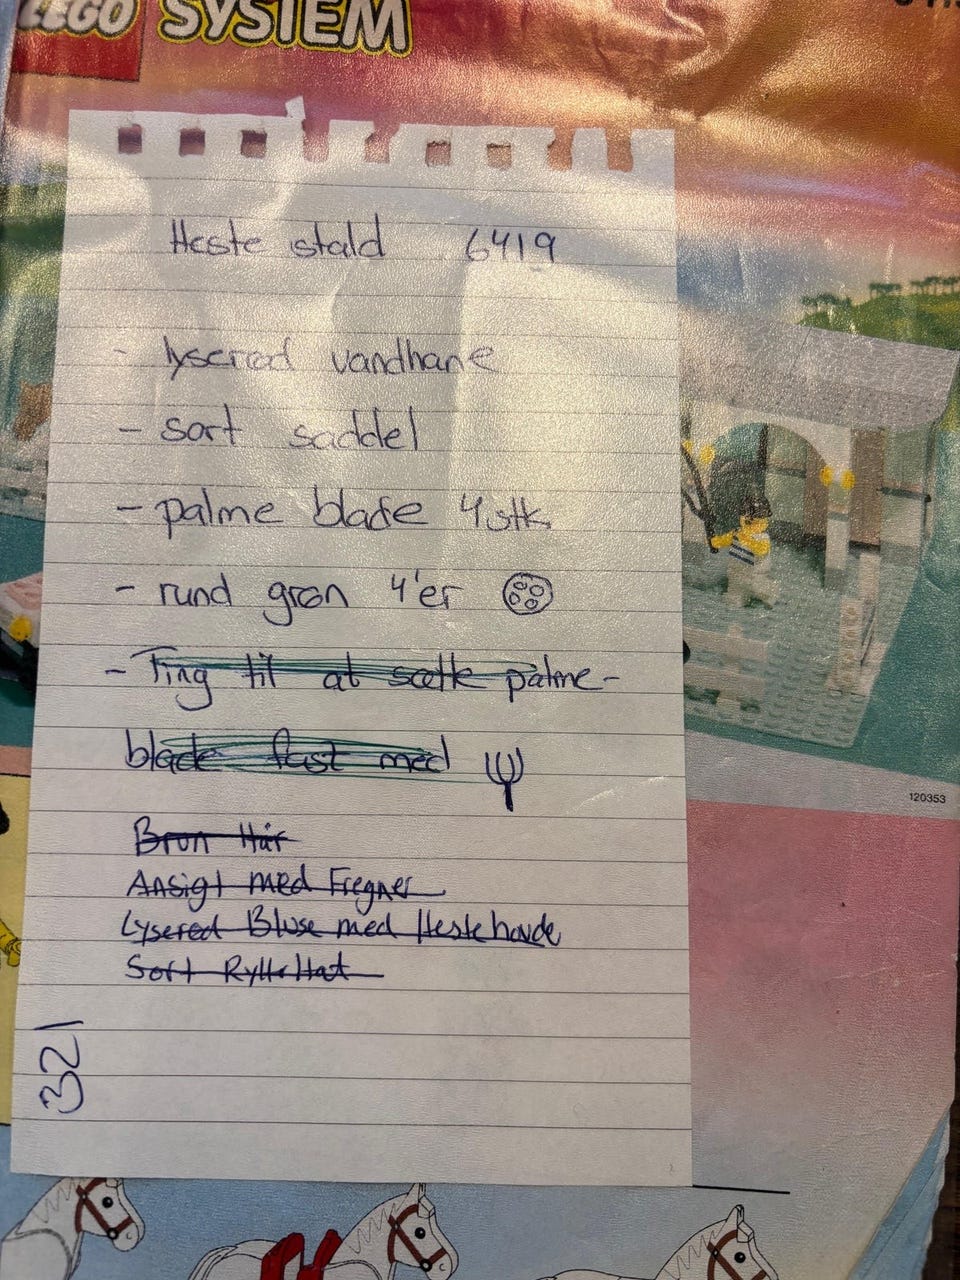 LEGO SYSTEM
Heste stald 6419
- lyserød vandhane
- sort saddel
- palme blade 4 stk.
- rund grøn 4'er
- Ting til at sætte palme-
blade fast med
Brun Hår
Ansigt med Fregner
Lysered Bluse med Hestehovde
Sort RytteHat
321
120353